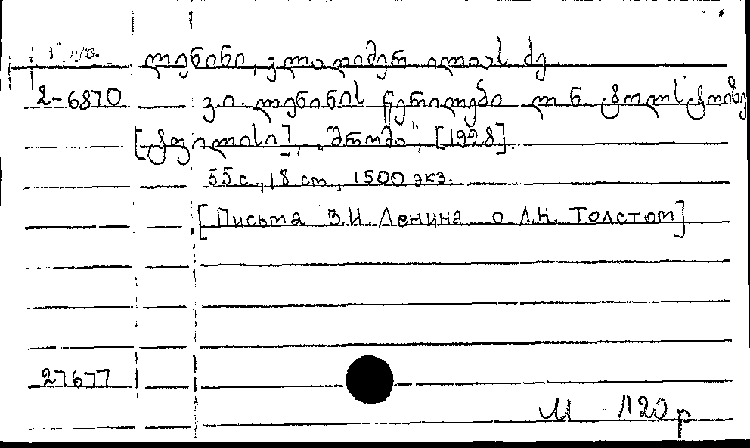 ლენინი, ვლადიმერ ილიას ძე
2-6870 ვ.ი. ლენინის წერილები ლ.ნ. ტოლსტოიზე
[ტფილისი], „შრომა", [1928].
55 с., 18 см., 1500 экз.
[Письма В.И. Ленина о Л.Н. Толстом]
27677
М 1120 р